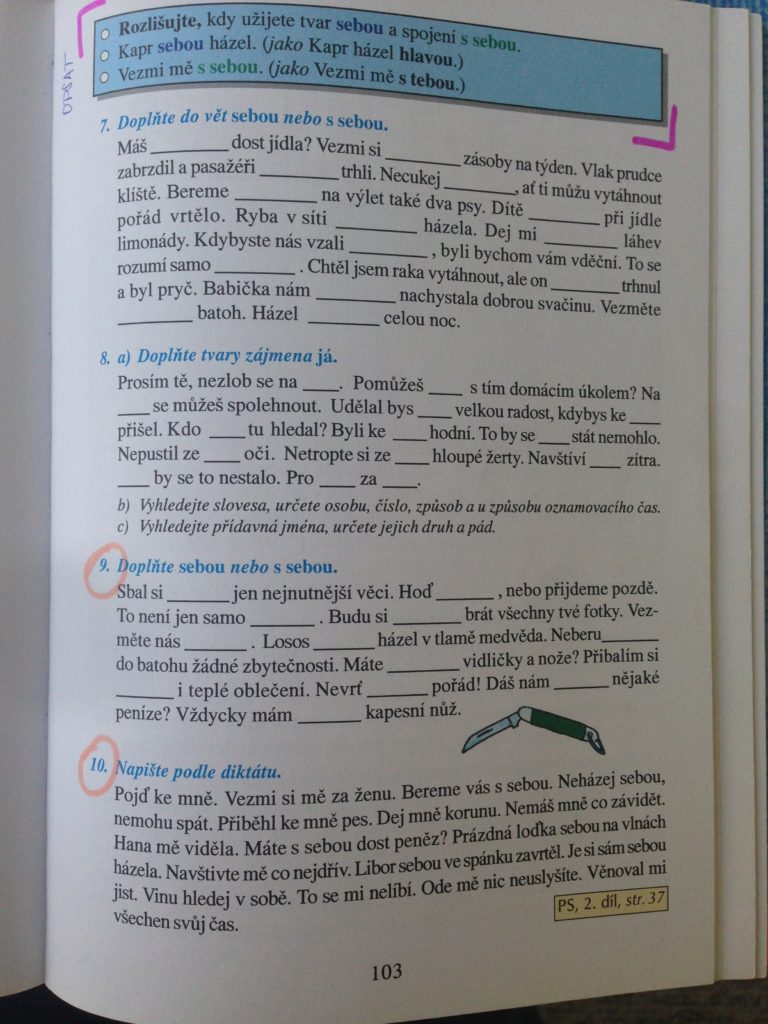 OPSAT
Rozlišujte, kdy užijete tvar sebou a spojení s sebou.
Kapr sebou házel. (jako Kapr házel hlavou.)
Vezmi mě s sebou. (jako Vezmi mě s tebou.)
7. Doplňte do vět sebou nebo s sebou.
Máš ________ dost jídla? Vezmi si ________ zásoby na týden. Vlak prudce
zabrzdil a pasažéři ________ trhli. Necukej ________, ať ti můžu vytáhnout
klíště. Bereme ________ na výlet také dva psy. Dítě ________ při jídle
pořád vrtělo. Ryba v síti ________ házela. Dej mi ________ láhev
limonády. Kdybyste nás vzali ________ , byli bychom vám vděční. To se
rozumí samo ________ . Chtěl jsem raka vytáhnout, ale on ________ trhnul
a byl pryč. Babička nám ________ nachystala dobrou svačinu. Vezměte
________ batoh. Házel ________ celou noc.
8. a) Doplňte tvary zájmena já.
Prosím tě, nezlob se na ____. Pomůžeš ____ s tím domácím úkolem? Na
____ se můžeš spolehnout. Udělal bys ____ velkou radost, kdybys ke ____
přišel. Kdo ____ tu hledal? Byli ke ____ hodní. To by se ____ stát nemohlo.
Nepustil ze ____ oči. Netropte si ze ____ hloupé žerty. Navštíví ____ zítra.
____ by se to nestalo. Pro ____ za ____.
b) Vyhledejte slovesa, určete osobu, číslo, způsob a u způsobu oznamovacího čas.
c) Vyhledejte přídavná jména, určete jejich druh a pád.
9. Doplňte sebou nebo s sebou.
Sbal si ________ jen nejnutnější věci. Hoď ________ , nebo přijdeme pozdě.
To není jen samo ________ . Budu si ________ brát všechny tvé fotky. Vez-
měte nás ________ . Losos ________ házel v tlamě medvěda. Neberu ________
do batohu žádné zbytečnosti. Máte ________ vidličky a nože? Přibalím si
________ i teplé oblečení. Nevrť ________ pořád! Dáš nám ________ nějaké
peníze? Vždycky mám ________ kapesní nůž.
10. Napište podle diktátu.
Pojď ke mně. Vezmi si mě za ženu. Bereme vás s sebou. Neházej sebou,
nemohu spát. Přiběhl ke mně pes. Dej mně korunu. Nemáš mně co závidět.
Hana mě viděla. Máte s sebou dost peněz? Prázdná loďka sebou na vlnách
házela. Navštivte mě co nejdřív. Libor sebou ve spánku zavrtěl. Je si sám sebou
jist. Vinu hledej v sobě. To se mi nelíbí. Ode mě nic neuslyšíte. Věnoval mi
všechen svůj čas.
PS, 2. díl, str. 37
103